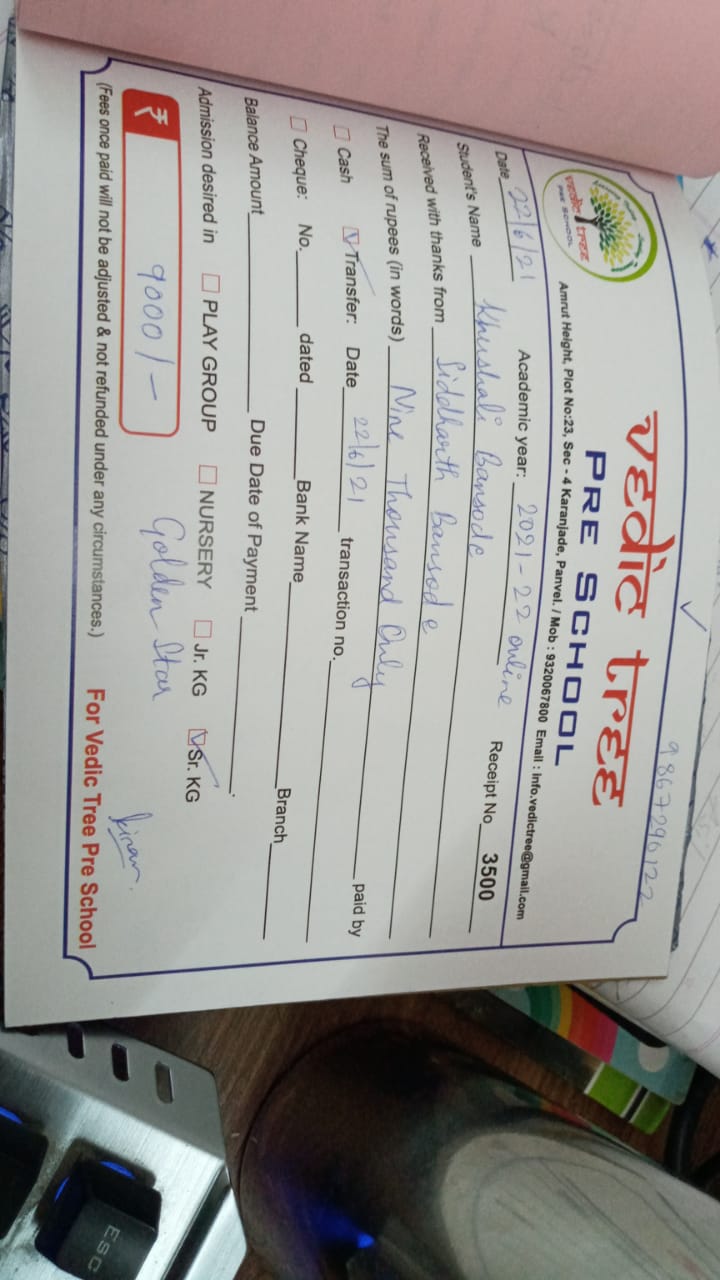 9867296122
vedic tree
PRE SCHOOL
vedic tree
PRE SCHOOL
Amrut Height, Plot No:23, Sec - 4 Karanjade, Panvel. / Mob : 9320067800 Email : info.vedictree@gmail.com
Date 22/6/21 Academic year: 2021-22 online Receipt No 3500
Student's Name Khushali Bansode
Received with thanks from Siddharth Bansode
The sum of rupees (in words) Nine Thousand Only
Cash Transfer: Date 22/6/21 transaction no. paid by
Cheque: No. dated Bank Name Branch
Balance Amount Due Date of Payment .
Admission desired in PLAY GROUP NURSERY Jr. KG Sr. KG
₹ 9000/- Golden Star
kiran.
(Fees once paid will not be adjusted & not refunded under any circumstances.) For Vedic Tree Pre School
ESC